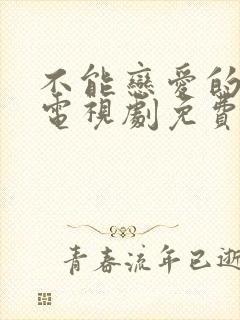 不能戀愛的
電視劇免費
青春流年已逝